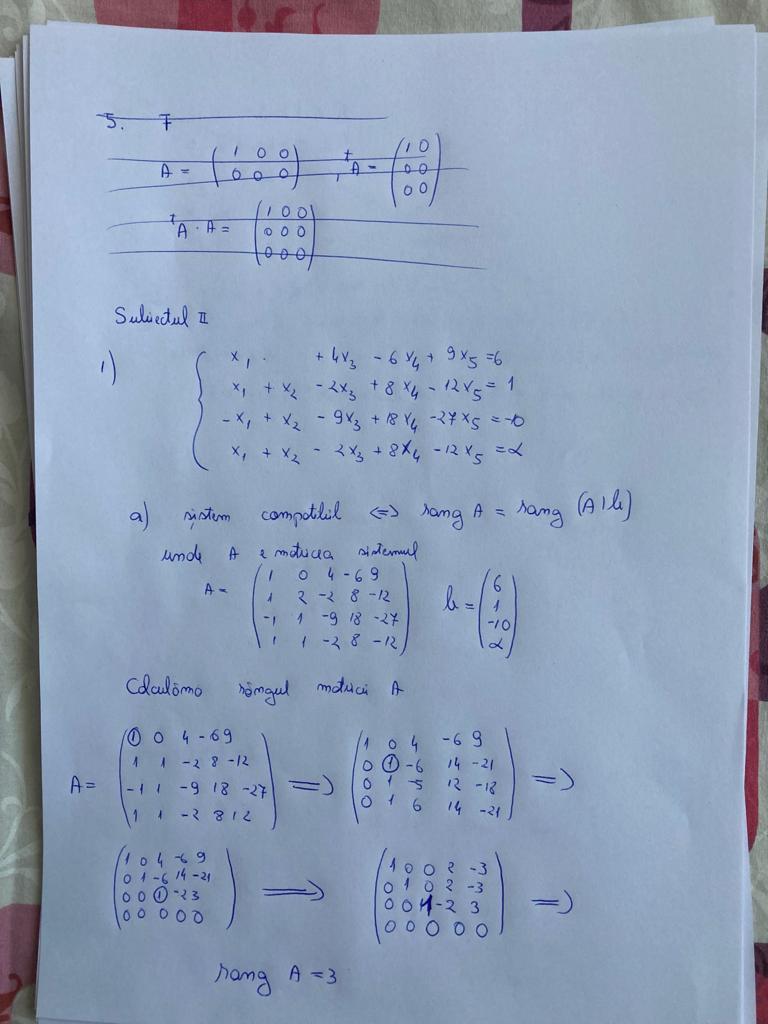 5. 7
A = ( 1 0 0 ) , ᵗA = ( 1 0 )
( 0 0 0 ) ( 0 0 )
( 0 0 )
ᵗA · A = ( 1 0 0 )
( 0 0 0 )
( 0 0 0 )
Subiectul II
1) { x₁ + 4x₃ - 6x₄ + 9x₅ = 6
x₁ + x₂ - 2x₃ + 8x₄ - 12x₅ = 1
-x₁ + x₂ - 9x₃ + 18x₄ - 27x₅ = -10
x₁ + x₂ - 2x₃ + 8x₄ - 12x₅ = α
a) sistem compatibil <=> rang A = rang (A|b)
unde A e matricea sistemul
A = ( 1 0 4 -6 9 ) b = ( 6 )
( 1 2 -2 8 -12 ) ( 1 )
( -1 1 -9 18 -27 ) ( -10 )
( 1 1 -2 8 -12 ) ( α )
Calculăm rangul matricii A
A = ( 1 0 4 -6 9 ) => ( 1 0 4 -6 9 ) =>
( 1 1 -2 8 -12 ) ( 0 1 -6 14 -21 )
( -1 1 -9 18 -27 ) ( 0 1 -5 12 -18 )
( 1 1 -2 8 12 ) ( 0 1 6 14 -21 )
( 1 0 4 -6 9 ) => ( 1 0 0 2 -3 ) =>
( 0 1 -6 14 -21 ) ( 0 1 0 2 -3 )
( 0 0 1 -2 3 ) ( 0 0 1 -2 3 )
( 0 0 0 0 0 ) ( 0 0 0 0 0 )
rang A = 3